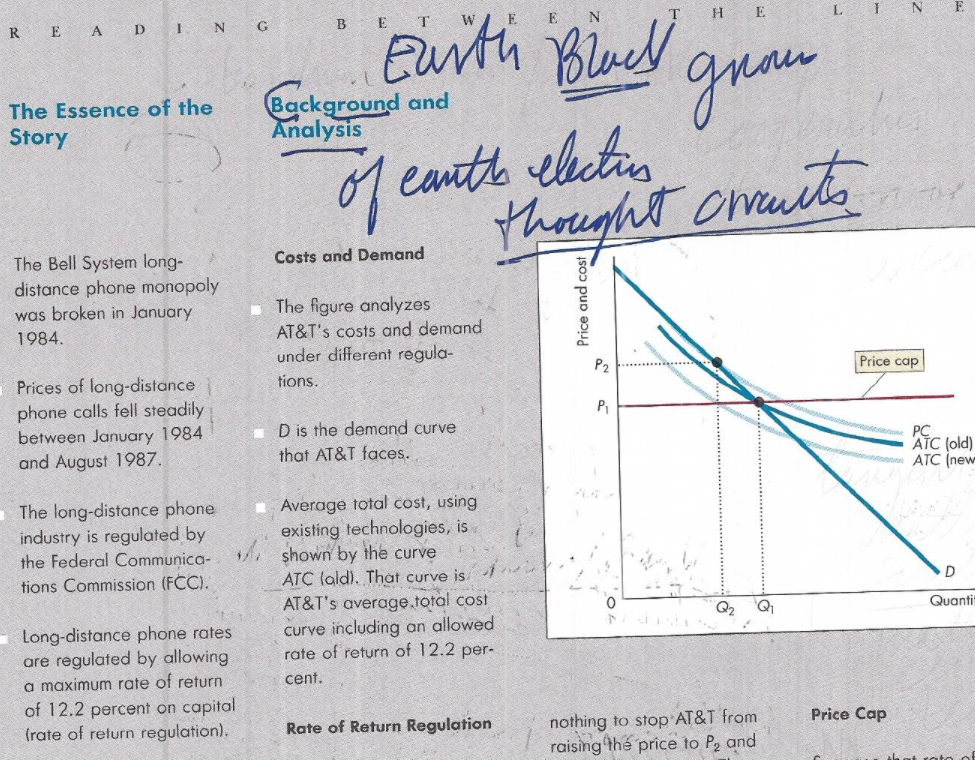 READING BETWEEN THE LINE
Earth Black
of earth
thought circuits
The Essence of the
Story
The Bell System long-
distance phone monopoly
was broken in January
1984.
Prices of long-distance
phone calls fell steadily
between January 1984
and August 1987.
The long-distance phone
industry is regulated by
the Federal Communica-
tions Commission (FCC).
Long-distance phone rates
are regulated by allowing
a maximum rate of return
of 12.2 percent on capital
(rate of return regulation).
Background and
Analysis
Costs and Demand
The figure analyzes
AT&T's costs and demand
under different regula-
tions.
D is the demand curve
that AT&T faces.
Average total cost, using
existing technologies, is
shown by the curve
ATC (old). That curve is
AT&T's average total cost
curve including an allowed
rate of return of 12.2 per-
cent.
Rate of Return Regulation
Price and cost
P2
P1
Price cap
PC
ATC (old)
ATC (new
D
0
Q2 Q1
Quantit
nothing to stop AT&T from
raising the price to P2 and
Price Cap
that rate of